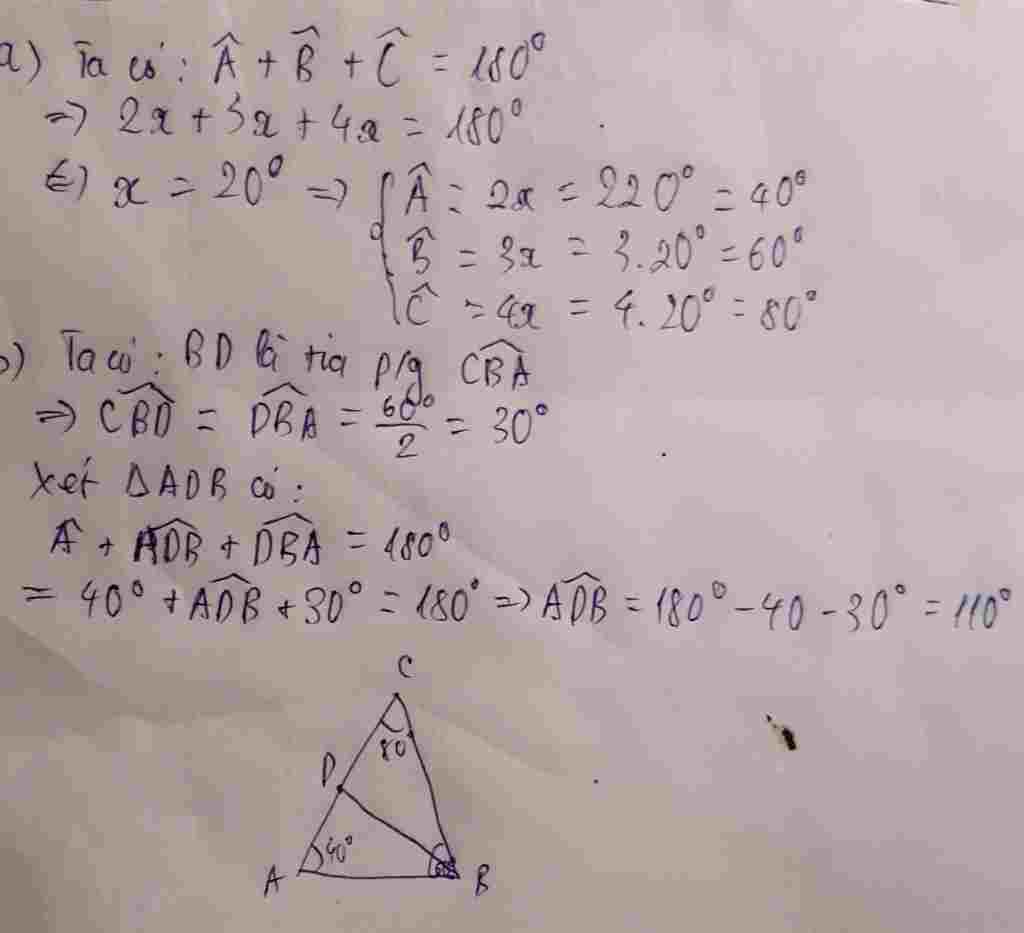 a) Ta có: Â + B̂ + Ĉ = 180°
=> 2x + 3x + 4x = 180°
<=> x = 20° => { Â = 2x = 220° = 40°
B̂ = 3x = 3.20° = 60°
Ĉ = 4x = 4.20° = 80°
b) Ta có: BD là tia p/g CBA^
=> CBD^ = DBA^ = 60°/2 = 30°
Xét ΔADB có:
Â + ADB^ + DBA^ = 180°
= 40° + ADB^ + 30° = 180° => ADB^ = 180° - 40 - 30° = 110°
C
80
D
40°
A B